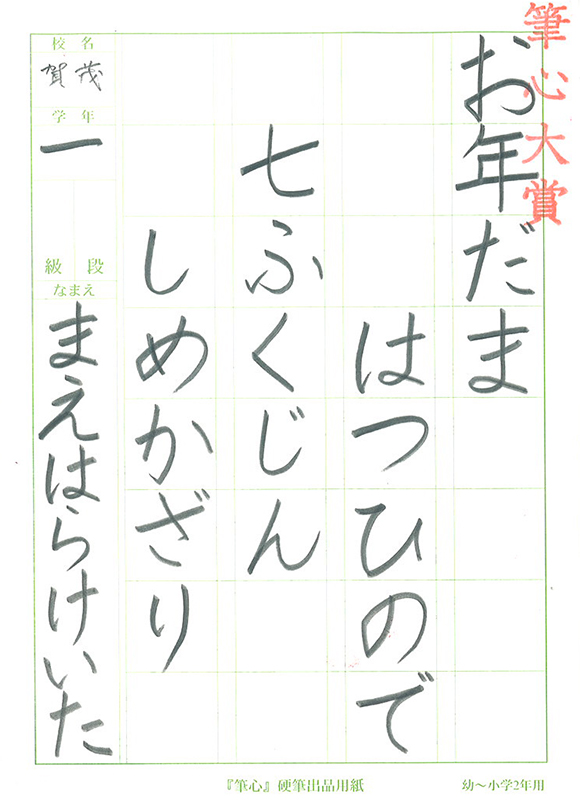 筆心大賞
お年だま
はつひので
七ふくじん
しめかざり
校名
賀茂
学年
一
級段
なまえ
まえはらけいた
『筆心』硬筆出品用紙
幼〜小学2年用